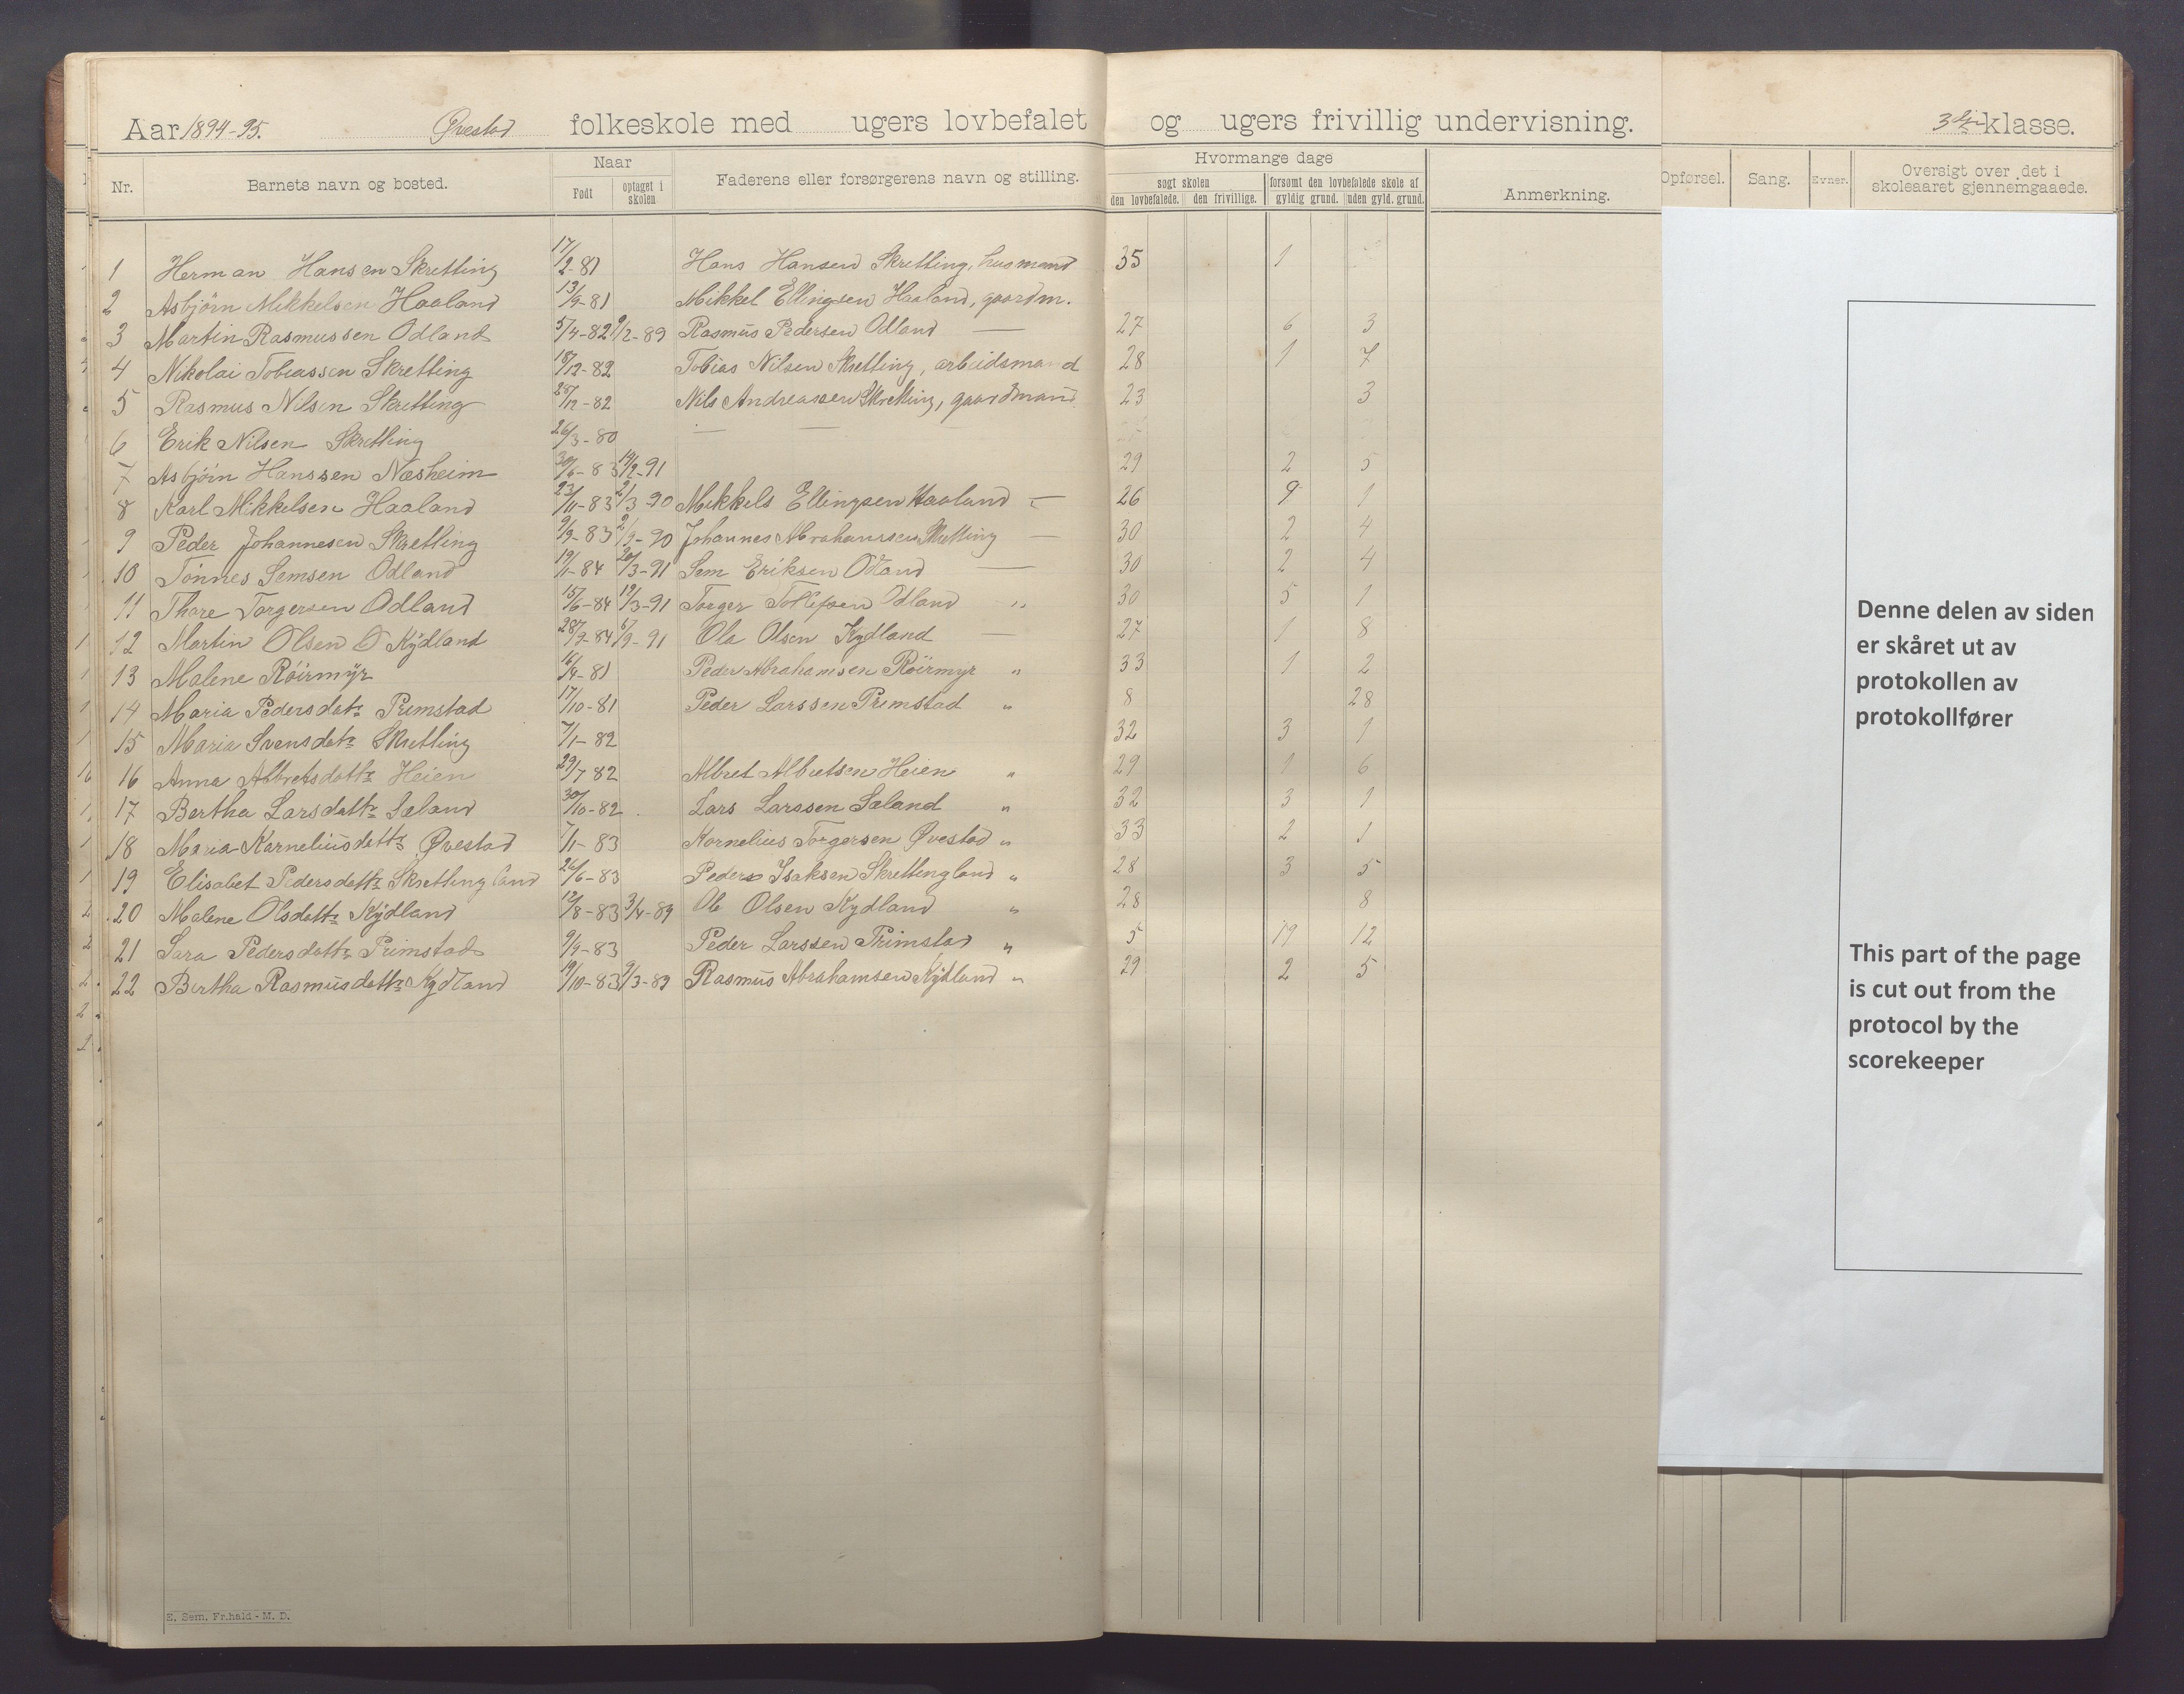 Aar 1894-95. Øvestad folkeskole med ugers lovbefalet og ugers frivillig undervisning. 3die klasse.
Nr. Barnets navn og bosted. Naar Født optaget i skolen Faderens eller forsørgerens navn og stilling. Hvormange dage søgt skolen den lovbefalede. den frivillige. forsømt den lovbefalede skole af gyldig grund. uden gyld. grund. Anmerkning. Opførsel. Sang. Evner. Oversigt over det i skoleaaret gjennemgaaede.
1 Herman Hansen Skretting 17/2-81 Hans Hansen Skretting, husmand 35 1
2 Asbjörn Mikkelsen Haaland 13/9-81 Mikkel Ellingsen Haaland, gaardm.
3 Martin Rasmussen Odland 5/4-82 9/2-89 Rasmus Pedersen Odland — 27 6 3
4 Nikolai Tobiassen Skretting 18/12-82 Tobias Nilsen Skretting, arbeidsmand 28 1 7
5 Rasmus Nilsen Skretting 28/12-82 Nils Andreassen Skretting, gaardmand 23 3
6 Erik Nilsen Skretting 26/3-80 — —
7 Asbjörn Hanssen Næsheim 30/6-83 14/2-91 29 2 5
8 Karl Mikkelsen Haaland 23/11-83 2/3-90 Mikkels Ellingsen Haaland — 26 9 1
9 Peder Johannesen Skretting 9/9-83 2/9-90 Johannes Abrahamssen Skretting — 30 2 4
10 Tönnes Semsen Odland 19/1-84 20/3-91 Sem Eriksen Odland — 30 2 4
11 Thore Torgersen Odland 15/6-84 19/3-91 Torger Tollefsen Odland " 30 5 1
12 Martin Olsen O Kydland 28/9-84 67/9-91 Ola Olsen Kydland — 27 1 8
13 Malene Röirmyr 16/4-81 Peder Abrahamsen Röirmyr " 33 1 2
14 Maria Pedersdatr Primstad 17/10-81 Peder Larssen Primstad " 8 28
15 Maria Svensdatr Skretting 7/1-82 32 3 1
16 Anna Albretsdattr Heien 29/7 82 Albret Albretsen Heien " 29 1 6
17 Bertha Larsdattr Sæland 30/10-82 Lars Larssen Sæland " 32 3 1
18 Maria Korneliusdattr Øvestad 7/1-83 Kornelius Torgersen Øvestad " 33 2 1
19 Elisabet Pedersdattr Skrettingland 26/6-83 Peder Isaksen Skrettingland " 28 3 5
20 Malene Olsdattr Kydland 12/8-83 3/4-89 Ole Olsen Kydland " 28 8
21 Sara Pedersdattr Primstad 9/9-83 Peder Larssen Primstad " 5 19 12
22 Bertha Rasmusdattr Kydland 19/10-83 9/3-89 Rasmus Abrahamsen Kydland " 29 2 5
E. Sem, Fr.hald - M. D.
Denne delen av siden
er skåret ut av
protokollen av
protokollfører
This part of the page
is cut out from the
protocol by the
scorekeeper